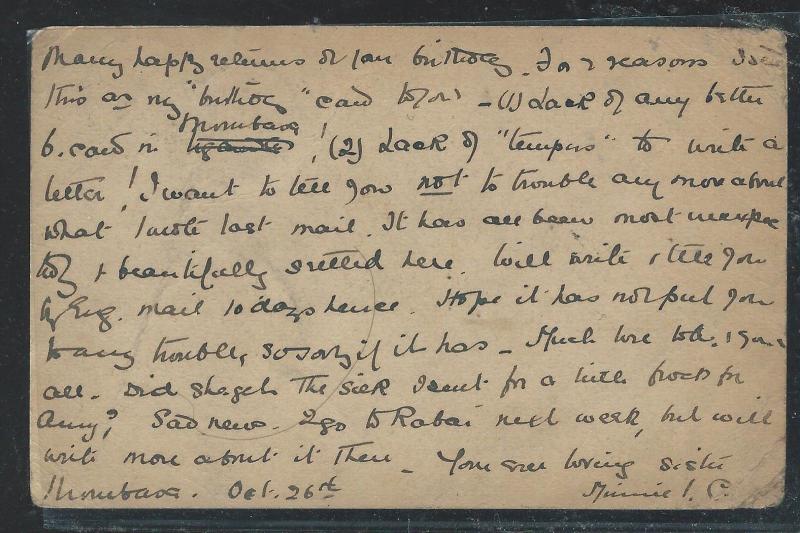 Many happy returns of yr birthday. For 2 reasons I se
this as my "birthday" card to you - (1) Lack of any better
b. card in Mombasa! (2) Lack of "tempus" to write a
letter! I want to tell you not to trouble any more about
what I wrote last mail. It has all been most unexpec
tedly & beautifully settled here. Will write & tell you
by Eng. mail 10 days hence. Hope it has not put you
to any trouble, so sorry if it has - Much love to
all. Did she get the silk I sent for a little frock for
Amy? Sad news. I go to Rabai next week, but will
write more about it then - Your ever loving sister
Mombasa. Oct. 26th Minnie I. C.